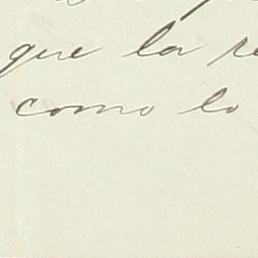 que la re
como lo